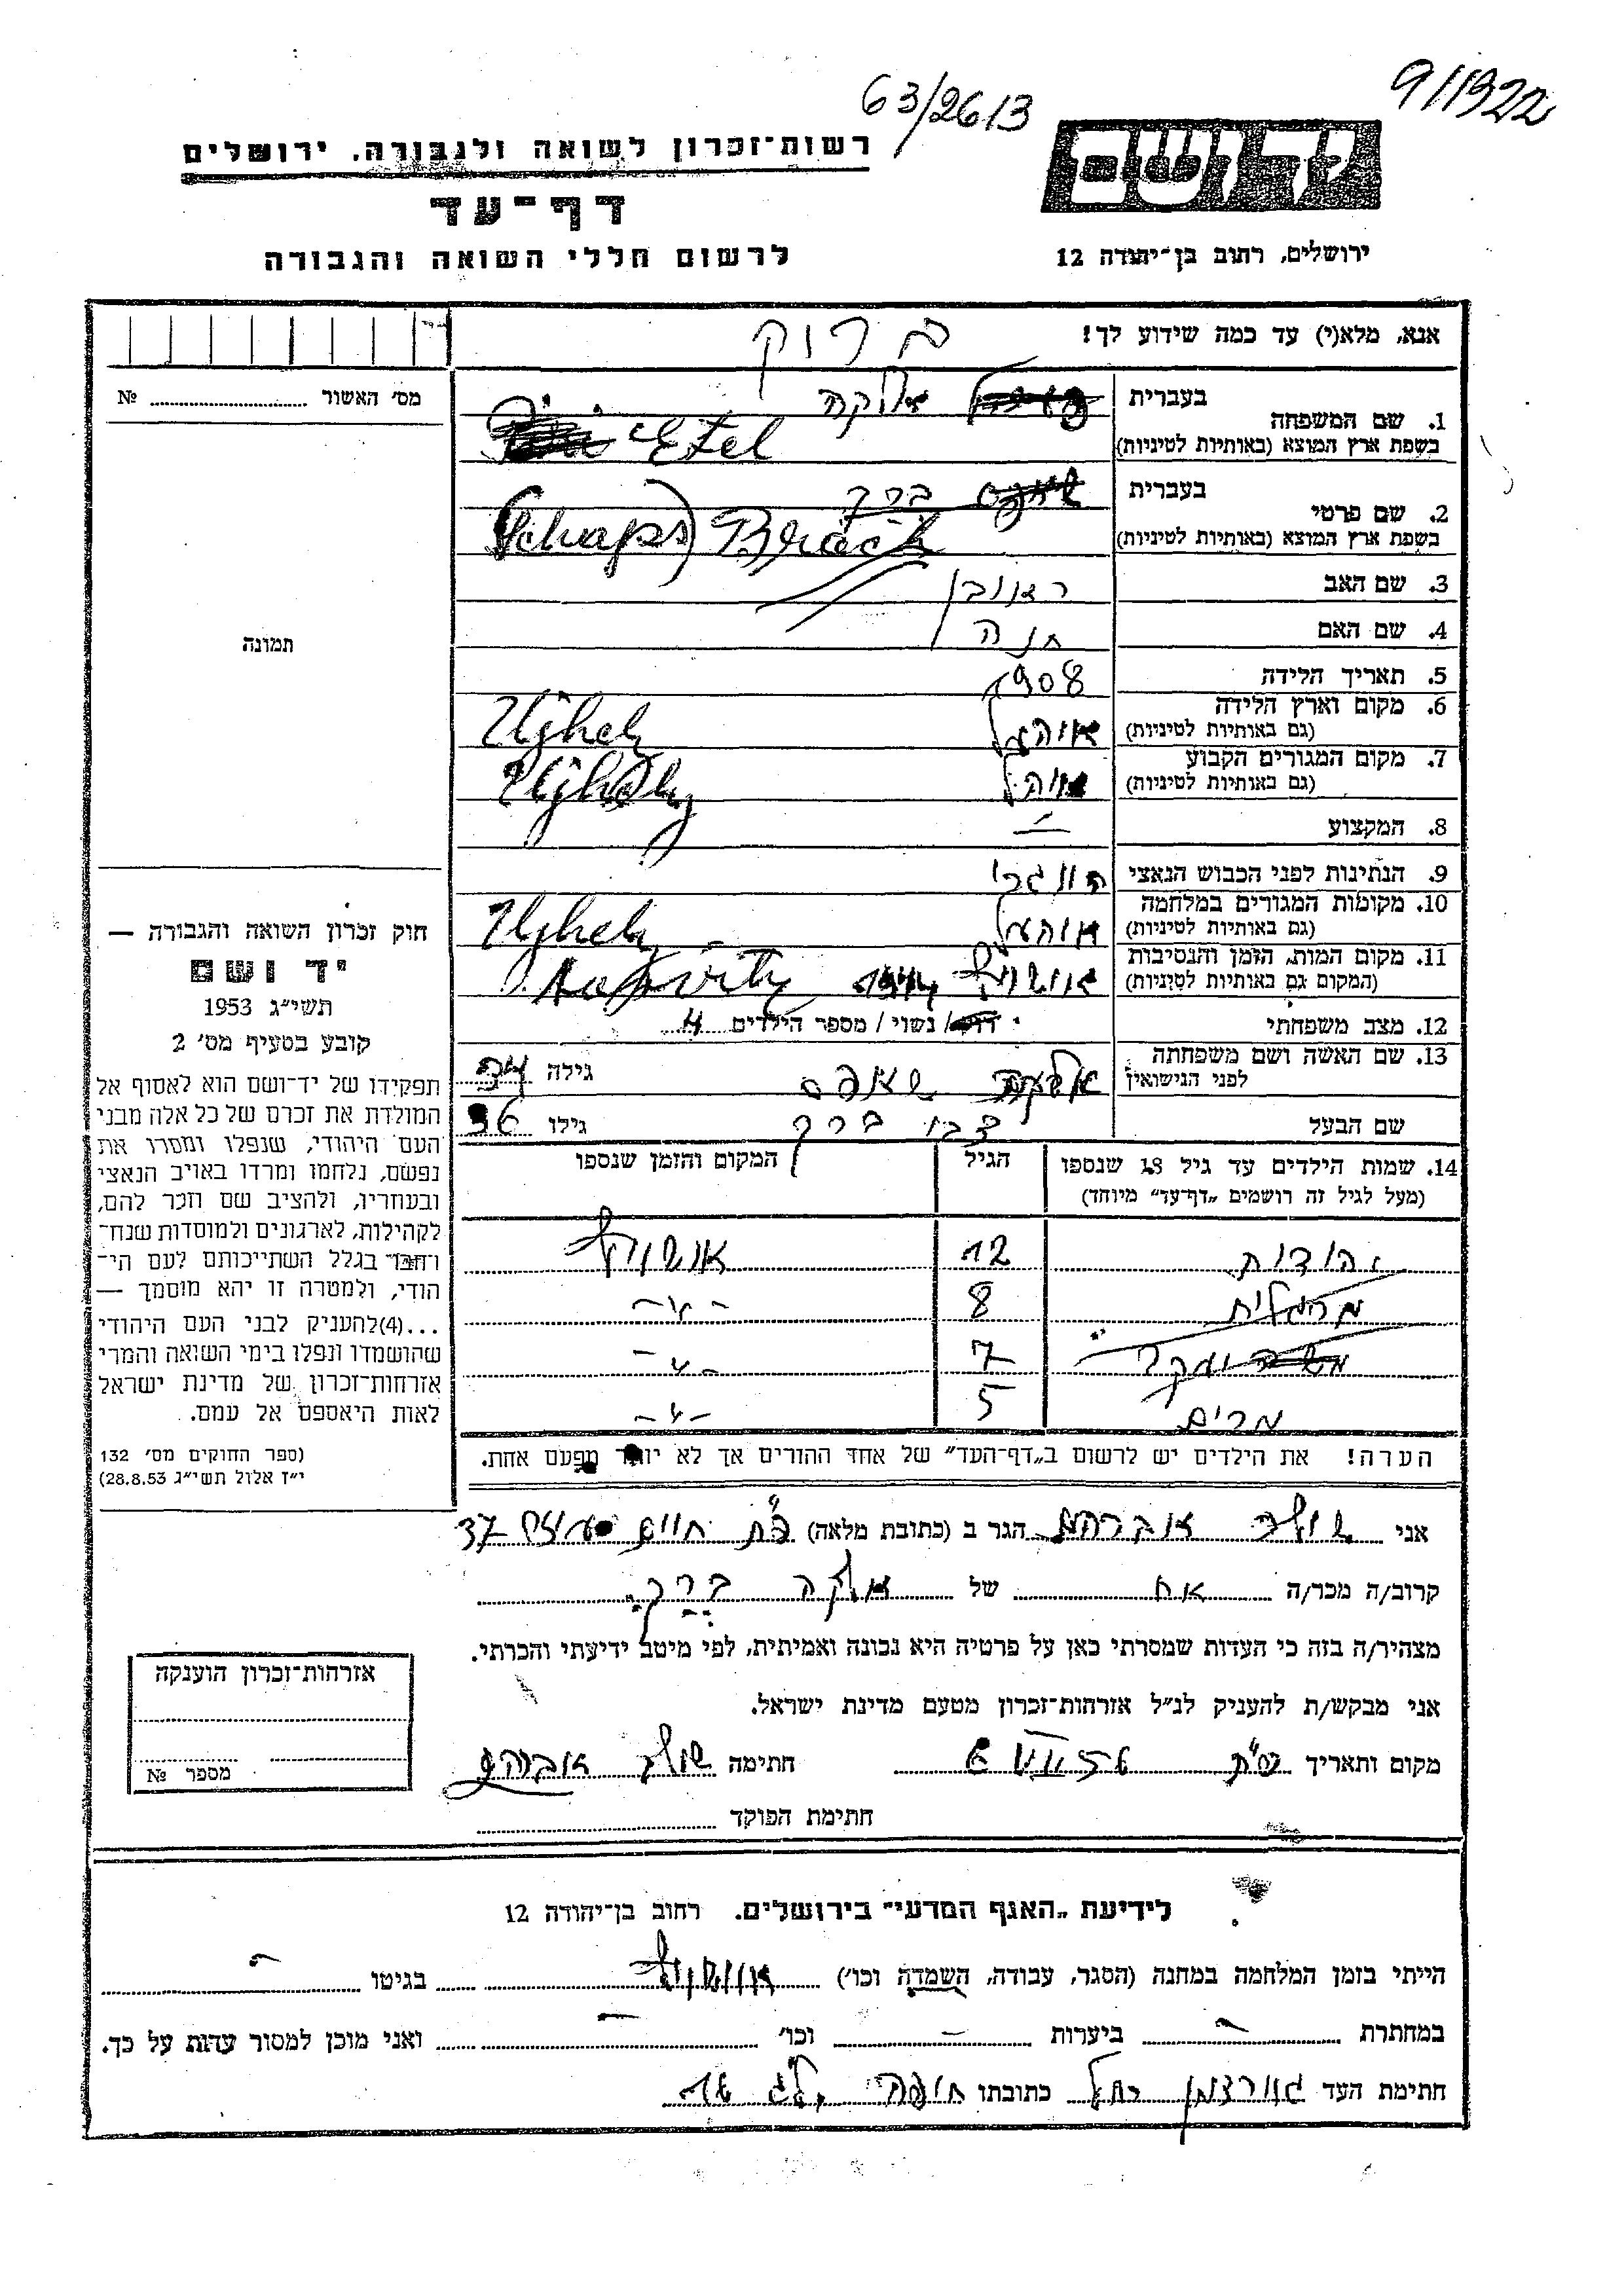 63/2613
9/1322
יד ושם
רשות־זכרון לשואה ולגבורה, ירושלים
דף־עד
לרשום חללי השואה והגבורה
ירושלים, רחוב בן־יהודה 12
אנא, מלא(י) עד כמה שידוע לך!
מס׳ האשור № 
בעברית אלקה
1. שם המשפחה
בשפת ארץ המוצא (באותיות לטיניות) Etel
בעברית ברך
2. שם פרטי
בשפת ארץ המוצא (באותיות לטיניות) (Schaps) Brach
3. שם האב ראובן
4. שם האם חנה
5. תאריך הלידה 1908
6. מקום וארץ הלידה
(גם באותיות לטיניות) אוהעל Ujhely
7. מקום המגורים הקבוע
(גם באותיות לטיניות) Ujhely
8. המקצוע —
9. הנתינות לפני הכבוש הנאצי
10. מקומות המגורים במלחמה
(גם באותיות לטיניות) אוהעל Ujhely
11. מקום המות, הזמן והנסיבות
(המקום גם באותיות לטיניות)
12. מצב משפחתי רווק / נשוי / מספר הילדים 4
13. שם האשה ושם משפחתה
לפני הנישואין אלקה שאפס גילה 34
שם הבעל צבי ברך גילו 36
14. שמות הילדים עד גיל 18 שנספו
(מעל לגיל זה רושמים „דף־עד” מיוחד)
הגיל
המקום והזמן שנספו
יהודית 12
8 -"-
7 -"-
מרים 5 -"-
הערה! את הילדים יש לרשום ב„דף־העד” של אחד ההורים אך לא יותר מפעם אחת.
תמונה
חוק זכרון השואה והגבורה —
יד ושם
תשי״ג 1953
קובע בסעיף מס׳ 2
תפקידו של יד־ושם הוא לאסוף אל
המולדת את זכרם של כל אלה מבני
העם היהודי, שנפלו ומסרו את
נפשם, נלחמו ומרדו באויב הנאצי
ובעוזריו, ולהציב שם וזכר להם,
לקהילות, לארגונים ולמוסדות שנח־
רבו בגלל השתייכותם לעם הי־
הודי, ולמטרה זו יהא מוסמך —
...(4) להעניק לבני העם היהודי
שהושמדו ונפלו בימי השואה והמרי
אזרחות־זכרון של מדינת ישראל
לאות היאספם אל עמם.
(ספר החוקים מס׳ 132
י״ז אלול תשי״ג 28.8.53)
אני אברהם הגר ב (כתובת מלאה) 37
קרוב/ה מכר/ה אח של אלקה ברך
מצהיר/ה בזה כי העדות שמסרתי כאן על פרטיה היא נכונה ואמיתית, לפי מיטב ידיעתי והכרתי.
אני מבקש/ת להעניק לנ״ל אזרחות־זכרון מטעם מדינת ישראל.
מקום ותאריך חתימה אברהם
חתימת הפוקד
אזרחות־זכרון הוענקה
מספר №
לידיעת „האגף המדעי” בירושלים, רחוב בן־יהודה 12
הייתי בזמן המלחמה במחנה (הסגר, עבודה, השמדה וכו׳) בגיטו —
במחתרת — ביערות — וכו׳ — ואני מוכן למסור עדות על כך.
חתימת העד כתובתו חיפה